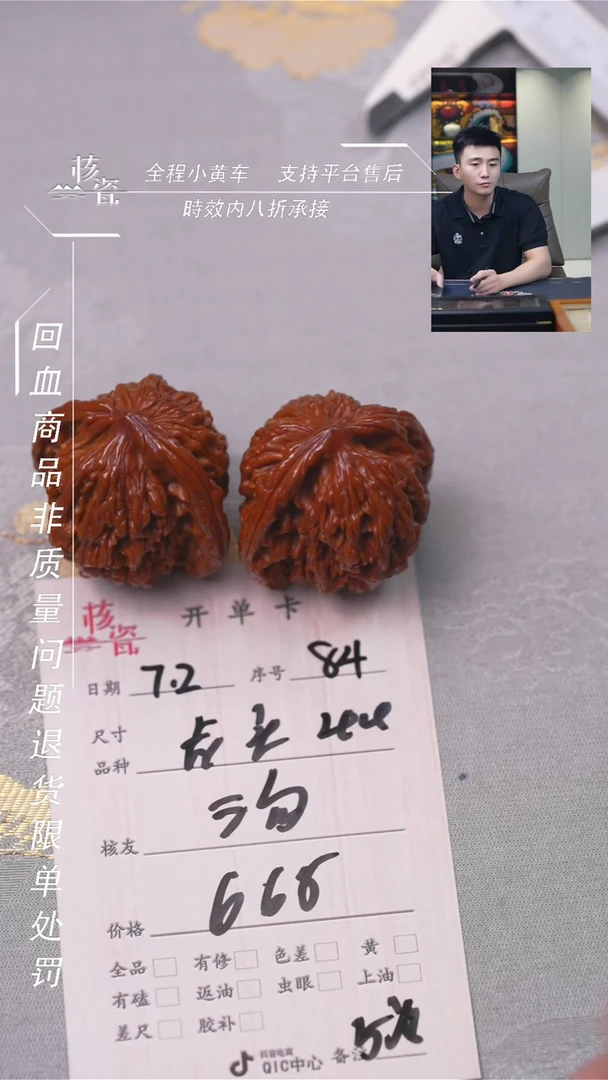 核瓷
全程小黄车 支持平台售后
時效内八折承接
回血商品非质量问题退货限单处罚
核瓷
开单卡
日期 7.2 序号 84
尺寸
品种
核友
价格 668
全品 有修 色差 黄
有磕 返油 虫眼 上油
差尺 胶补
抖音电商
QIC中心 备注